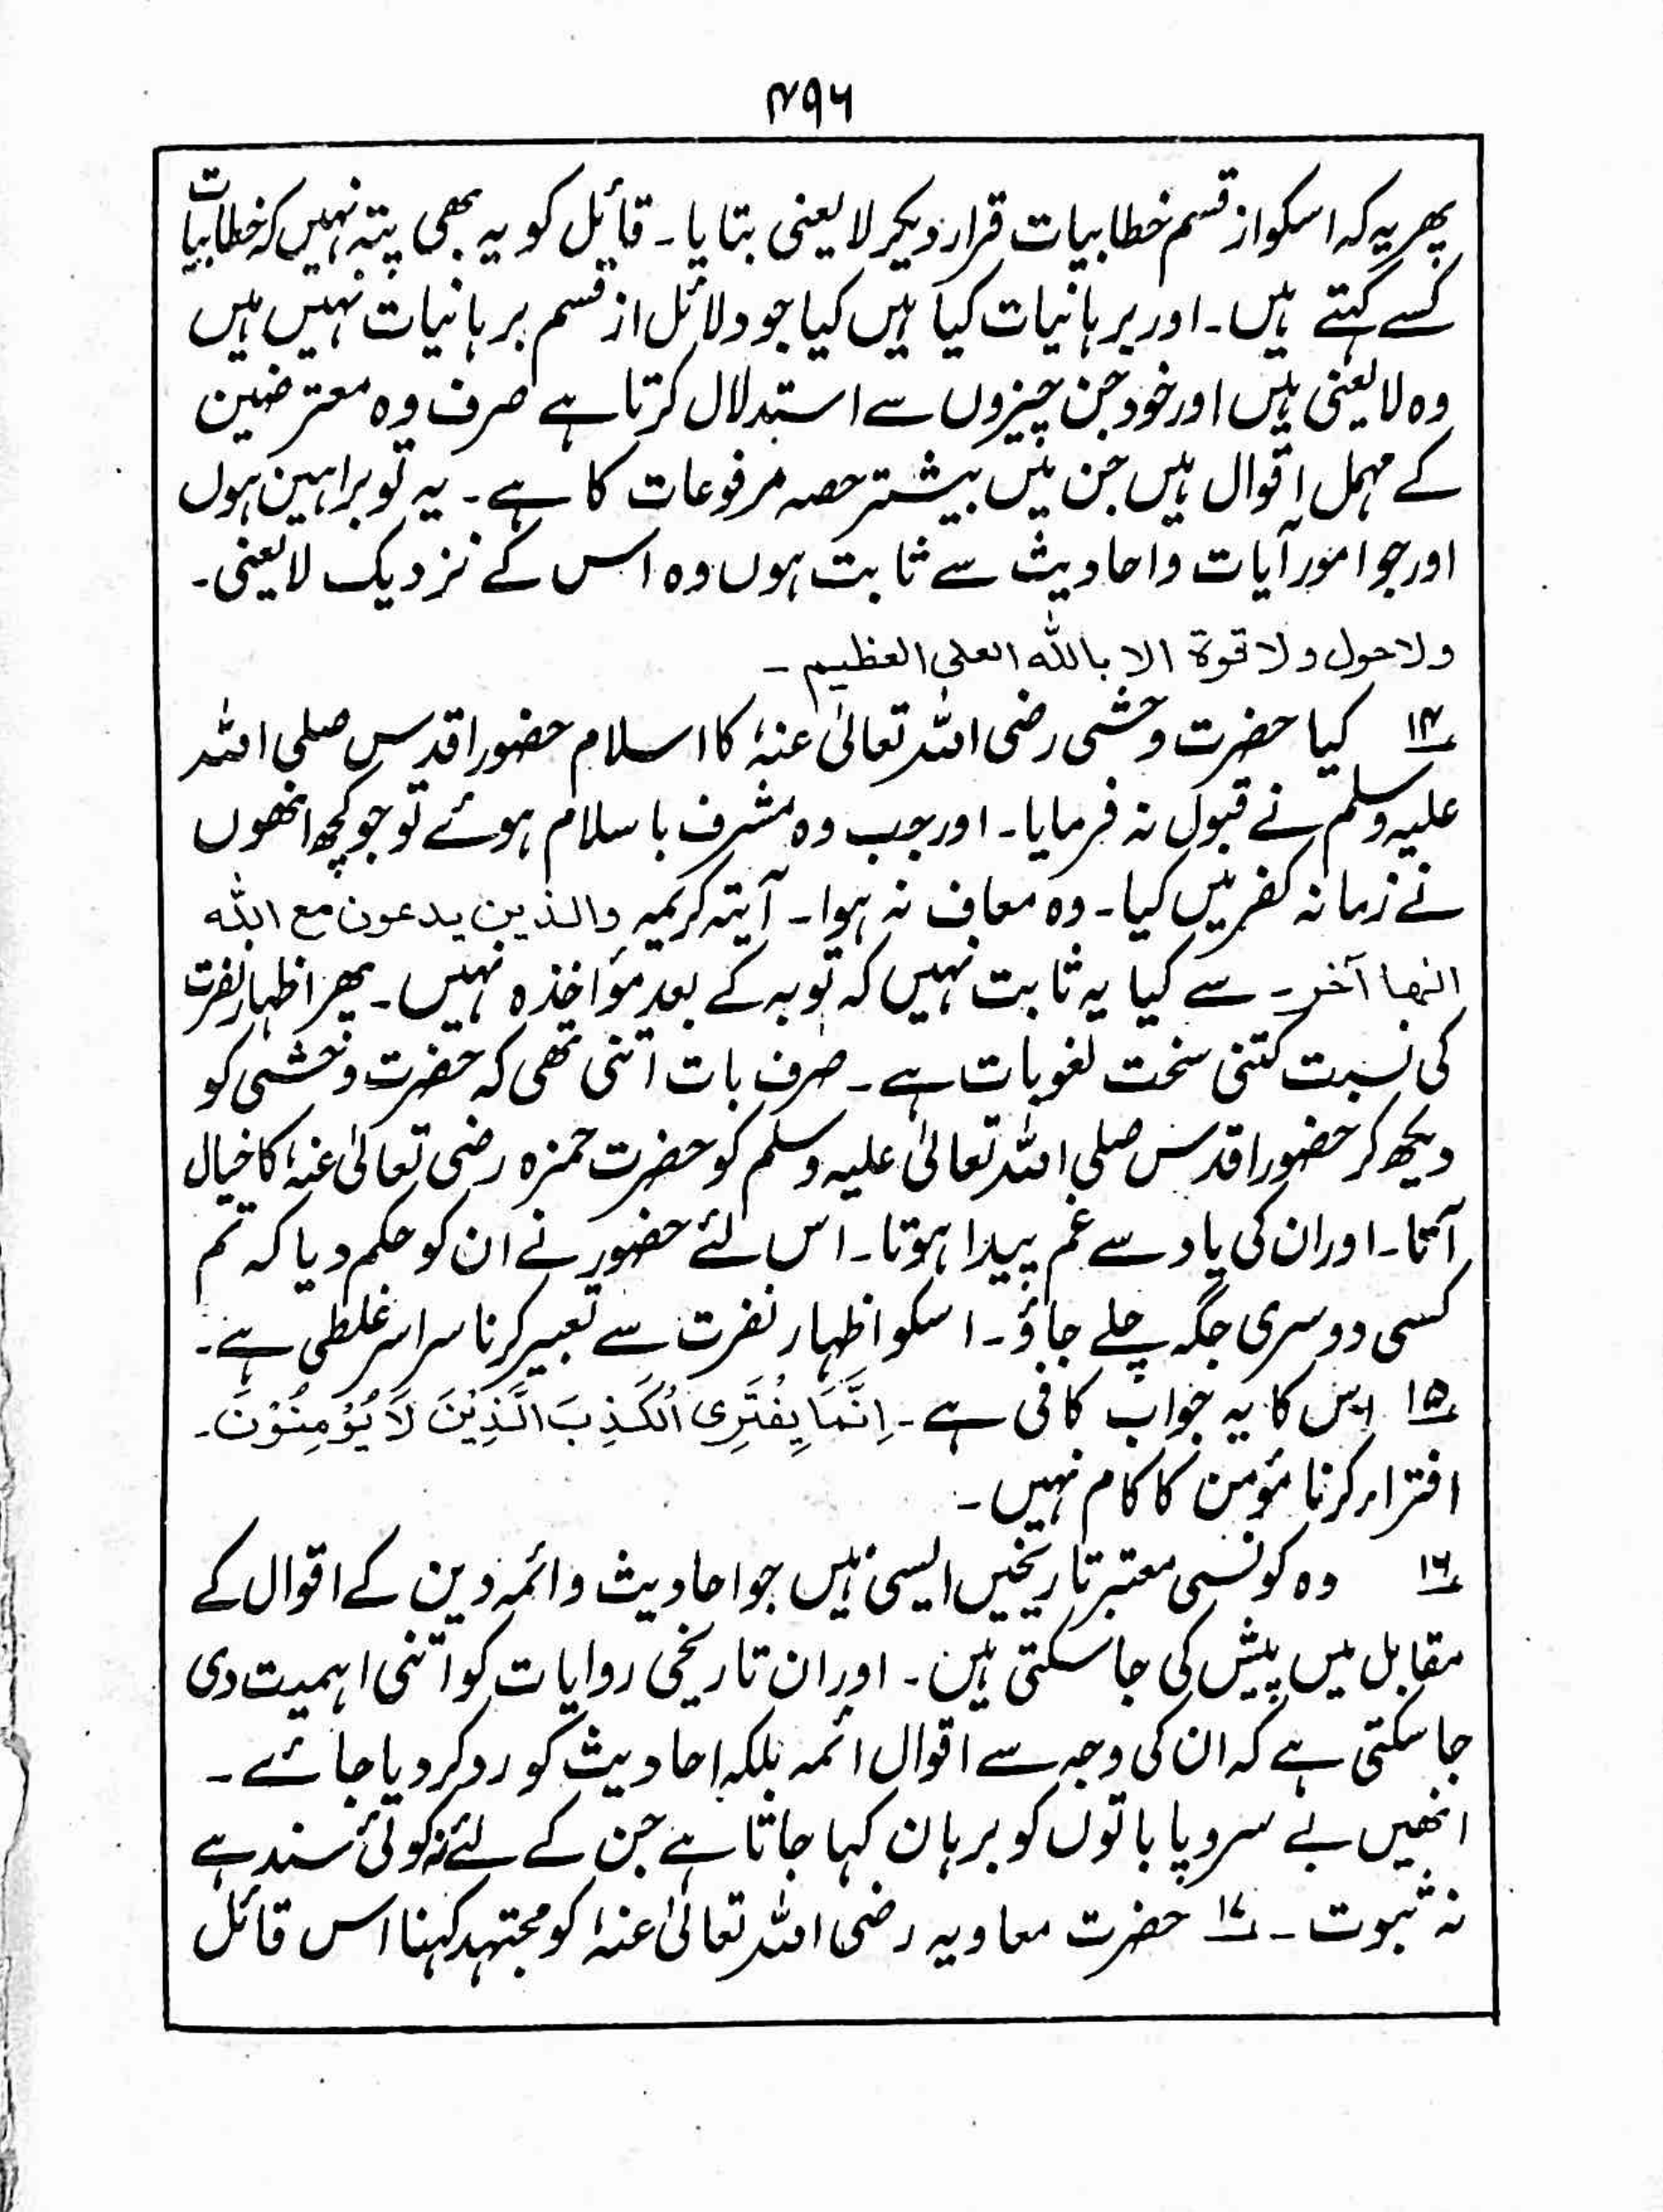 ۴۹۶
پھر یہ کہ اسکو از قسم خطابیات قرار دیکر لا یعنی بتایا۔ قائل کو یہ بھی پتہ نہیں کہ خطابیات
کسے کہتے ہیں۔ اور برہانیات کیا ہیں کیا جو دلائل از قسم برہانیات نہیں ہیں
وہ لا یعنی ہیں اور خود جن چیزوں سے استدلال کرتا ہے صرف وہ معترضین
کے مہمل اقوال ہیں جن میں بیشتر حصہ مرفوعات کا ہے۔ یہ تو براہین ہوں
اور جو امور آیات واحادیث سے ثابت ہوں وہ اس کے نزدیک لا یعنی۔
ولا حول ولا قوة الا باللہ العلی العظیم۔
۱۴؎ کیا حضرت وحشی رضی اللہ تعالیٰ عنہٗ کا اسلام حضور اقدس صلی اللہ
علیہ وسلم نے قبول نہ فرمایا۔ اور جب وہ مشرف باسلام ہوئے تو جو کچھ انھوں
نے زمانہ کفر میں کیا۔ وہ معاف نہ ہوا۔ آیتہ کریمہ والذین یدعون مع اللہ
الٰھا آخر۔ سے کیا یہ ثابت نہیں کہ توبہ کے بعد مؤاخذہ نہیں۔ پھر اظہار نفرت
کی نسبت کتنی سخت لغو بات ہے۔ صرف بات اتنی تھی کہ حضرت وحشی کو
دیکھ کر حضور اقدس صلی اللہ تعالیٰ علیہ وسلم کو حضرت حمزہ رضی تعالیٰ عنہٗ کا خیال
آتا۔ اور ان کی یاد سے غم پیدا ہوتا۔ اس لئے حضور نے ان کو حکم دیا کہ تم
کسی دوسری جگہ چلے جاؤ۔ اسکو اظہار نفرت سے تعبیر کرنا سراسر غلطی ہے۔
۱۵؎ اس کا یہ جواب کافی ہے۔ اِنَّمَا یَفْتَرِی الْکَذِبَ الَّذِیْنَ لَا یُؤْمِنُوْنَ۔
افتراء کرنا مؤمن کا کام نہیں۔
۱۶؎ وہ کونسی معتبر تاریخیں ایسی ہیں جو احادیث وائمہ دین کے اقوال کے
مقابل میں پیش کی جا سکتی ہیں۔ اور ان تاریخی روایات کو اتنی اہمیت دی
جا سکتی ہے کہ ان کی وجہ سے اقوال ائمہ بلکہ احادیث کو رد کر دیا جائے۔
انھیں بے سر و پا باتوں کو برہان کہا جاتا ہے جن کے لئے نہ کوئی سند ہے
نہ ثبوت۔ ۱۷؎ حضرت معاویہ رضی اللہ تعالیٰ عنہٗ کو مجتہد کہنا اس قائل